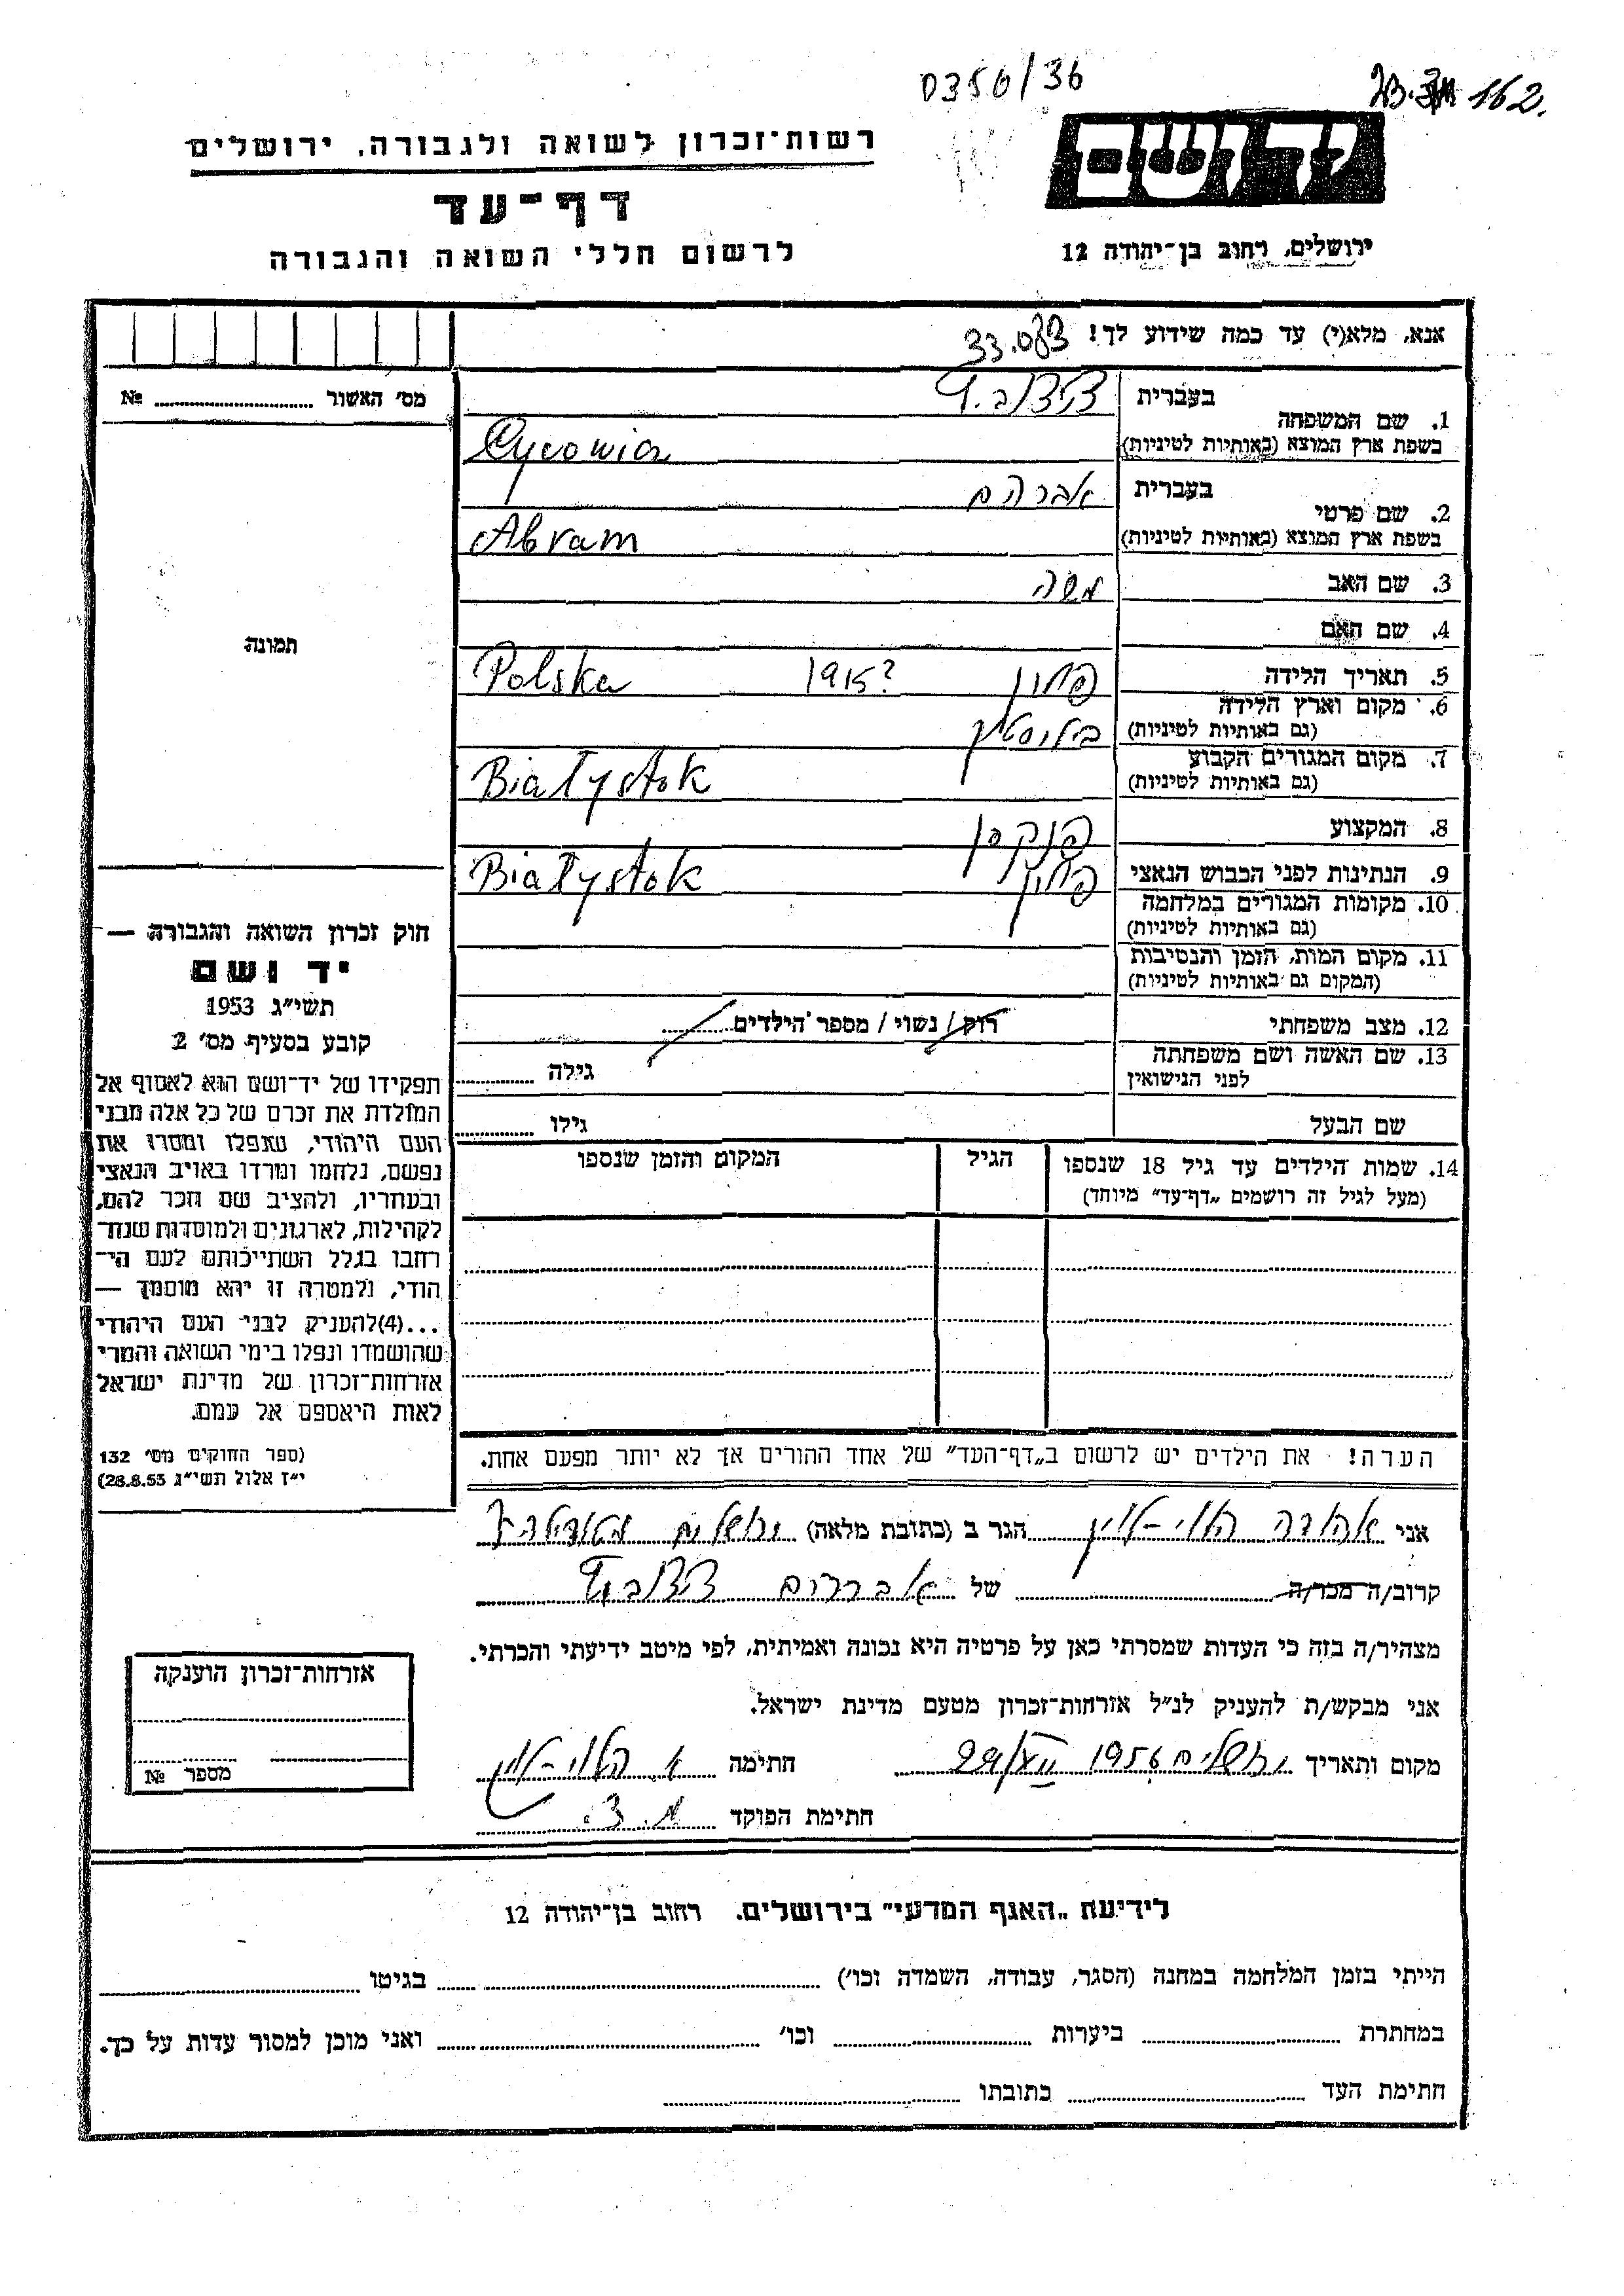 D356/36
162.
יד ושם
רשות־זכרון לשואה ולגבורה, ירושלים
דף־עד
לרשום חללי השואה והגבורה
ירושלים, רחוב בן־יהודה 12
אנא, מלא(י) עד כמה שידוע לך!
מס' האשור № ........
בעברית
1. שם המשפחה
בשפת ארץ המוצא (באותיות לטיניות)
בעברית אברהם
2. שם פרטי
בשפת ארץ המוצא (באותיות לטיניות) Abram
3. שם האב משה
4. שם האם
תמונה
5. תאריך הלידה פולין 1915? Polska
6. מקום וארץ הלידה
(גם באותיות לטיניות) ביליסטוק
7. מקום המגורים הקבוע
(גם באותיות לטיניות) Białystok
8. המקצוע פנקסן
9. הנתינות לפני הכבוש הנאצי פולין Białystok
10. מקומות המגורים במלחמה
(גם באותיות לטיניות)
11. מקום המות, הזמן והנסיבות
(המקום גם באותיות לטיניות)
12. מצב משפחתי רוק/ נשוי / מספר הילדים........
13. שם האשה ושם משפחתה
לפני הנישואין גילה ........
שם הבעל גילו ........
14. שמות הילדים עד גיל 18 שנספו
(מעל לגיל זה רושמים „דף־עד" מיוחד)
הגיל
המקום והזמן שנספו
חוק זכרון השואה והגבורה —
יד ושם
תשי"ג 1953
קובע בסעיף מס' 2
תפקידו של יד־ושם הוא לאסוף אל
המולדת את זכרם של כל אלה מבני
העם היהודי, שנפלו ומסרו את
נפשם, נלחמו ומרדו באויב הנאצי
ובעוזריו, ולהציב שם וזכר להם,
לקהילות, לארגונים ולמוסדות שנח־
רחבו בגלל השתייכותם לעם הי־
הודי, ולמטרה זו יהא מוסמך —
...(4)להעניק לבני העם היהודי
שהושמדו ונפלו בימי השואה והמרי
אזרחות־זכרון של מדינת ישראל
לאות היאספם אל עמם.
(ספר החוקים מס' 132
י"ז אלול תשי"ג 28.8.53)
הערה! את הילדים יש לרשום ב„דף־העד" של אחד ההורים אך לא יותר מפעם אחת.
אני הגר ב (כתובת מלאה) ירושלים
קרוב/ה מכר/ה ........ של אברהם
מצהיר/ה בזה כי העדות שמסרתי כאן על פרטיה היא נכונה ואמיתית, לפי מיטב ידיעתי והכרתי.
אני מבקש/ת להעניק לנ"ל אזרחות־זכרון מטעם מדינת ישראל.
מקום ותאריך ירושלים 1956 חתימה
חתימת הפוקד
אזרחות־זכרון הוענקה
מספר №
לידיעת „האגף המדעי" בירושלים. רחוב בן־יהודה 12
הייתי בזמן המלחמה במחנה (הסגר, עבודה, השמדה וכו') ........ בגיטו ........
במחתרת ........ ביערות ........ וכו' ........ ואני מוכן למסור עדות על כך.
חתימת העד ........ כתובתו ........